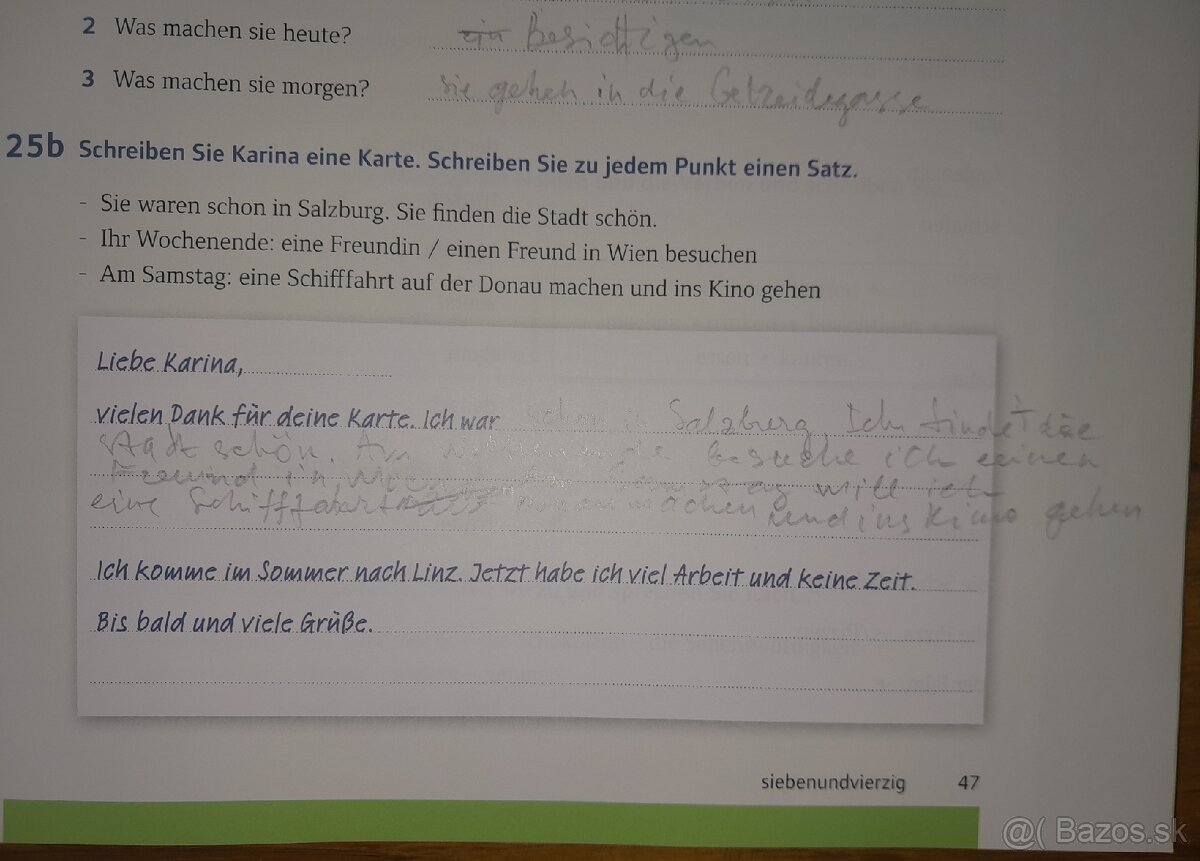 2 Was machen sie heute? ein Besichtigen
3 Was machen sie morgen? sie gehen in die Getreidegasse
25b Schreiben Sie Karina eine Karte. Schreiben Sie zu jedem Punkt einen Satz.
- Sie waren schon in Salzburg. Sie finden die Stadt schön.
- Ihr Wochenende: eine Freundin / einen Freund in Wien besuchen
- Am Samstag: eine Schifffahrt auf der Donau machen und ins Kino gehen
Liebe Karina,
vielen Dank für deine Karte. Ich war schon in Salzburg. Ich finde die
Stadt schön. Am besuche ich einen
Freund in will ich
eine Schifffahrt machen und ins Kino gehen
Ich komme im Sommer nach Linz. Jetzt habe ich viel Arbeit und keine Zeit.
Bis bald und viele Grüße.
siebenundvierzig 47
@( Bazos.sk